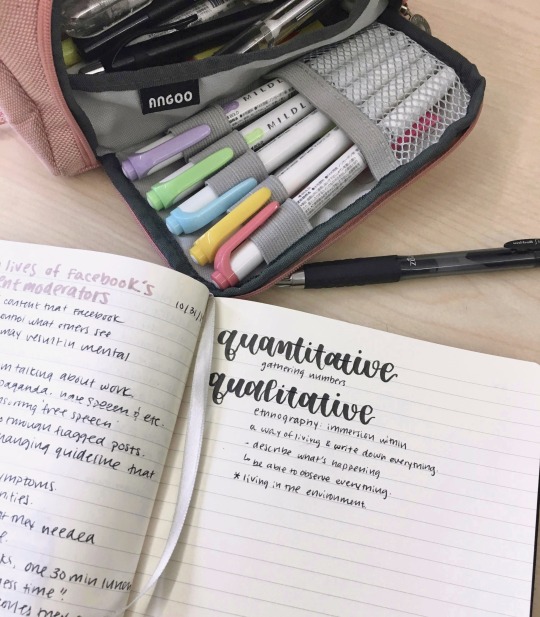 ANGOO
MILDL
MILDL
lives of Facebook's
moderators
10/31/
content that Facebook
control what others see
may result in mental
talking about work.
free speech
through flagged posts.
changing guideline that
symptoms.
they needed
one 30 min lunch
time"
quantitative
gathering numbers
qualitative
ethnography: immersion within
a way of living & write down everything.
- describe what's happening
↳ be able to observe everything.
* living in the environment.